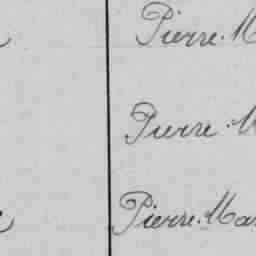 Pierre. M
Pierre. M
Pierre. Mar